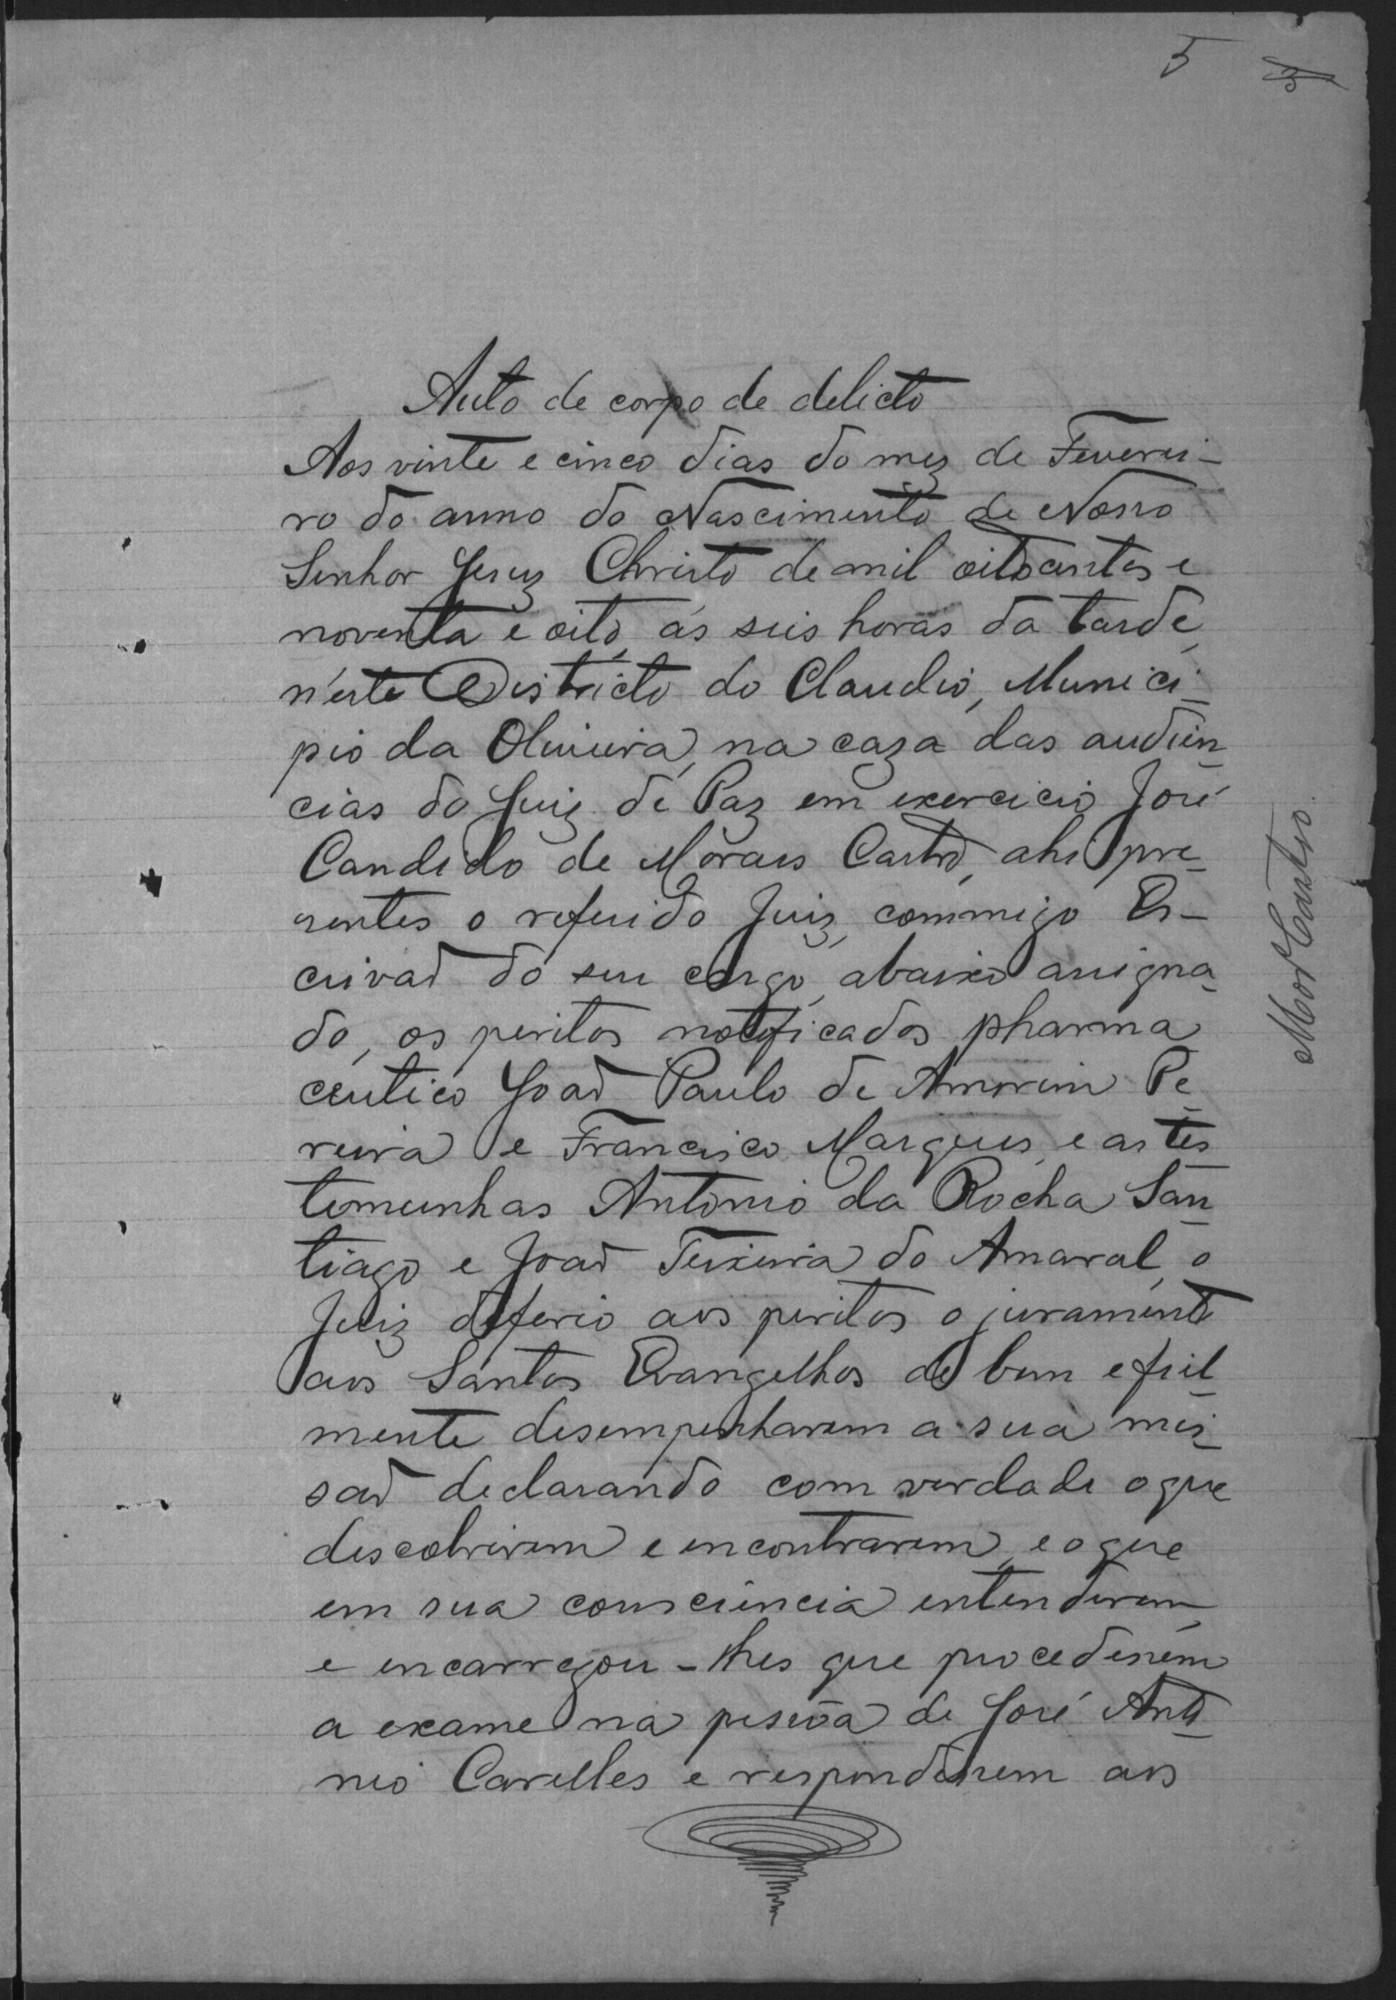 5 3
Auto de corpo de delicto
Aos vinte e cinco dias do mez de Feverei-
ro do anno do Nascimento de Nosso
Senhor Jesus Christo de mil oitocentos e
noventa e oito, ás seis horas da tarde,
n'este Districto do Claudio, Munici-
pio da Oliveira, na caza das audien-
cias do Juiz de Paz em exercicio José
Candido de Moraes Castro, ahi pre-
sentes o referido Juiz, commigo Es-
crivaõ do seu cargo, abaixo assigna-
do, os peritos notificados pharma
ceutico Joaõ Paulo de Amorim Pe-
reira e Francisco Marques, e as tes-
temunhas Antonio da Rocha San-
tiago e Joaõ Teixeira do Amaral, o
Juiz deferio aos peritos o juramento
aos Santos Evangelhos de bem e fiel-
mente desempenharem a sua mis-
saõ declarando com verdade o que
descobrirem e encontrarem, e o que
em sua consciencia entenderem,
e encarregou-lhes que procedessem
a exame na pessôa de José Anto-
nio Carelles e respondessem aos
Mor Castro.